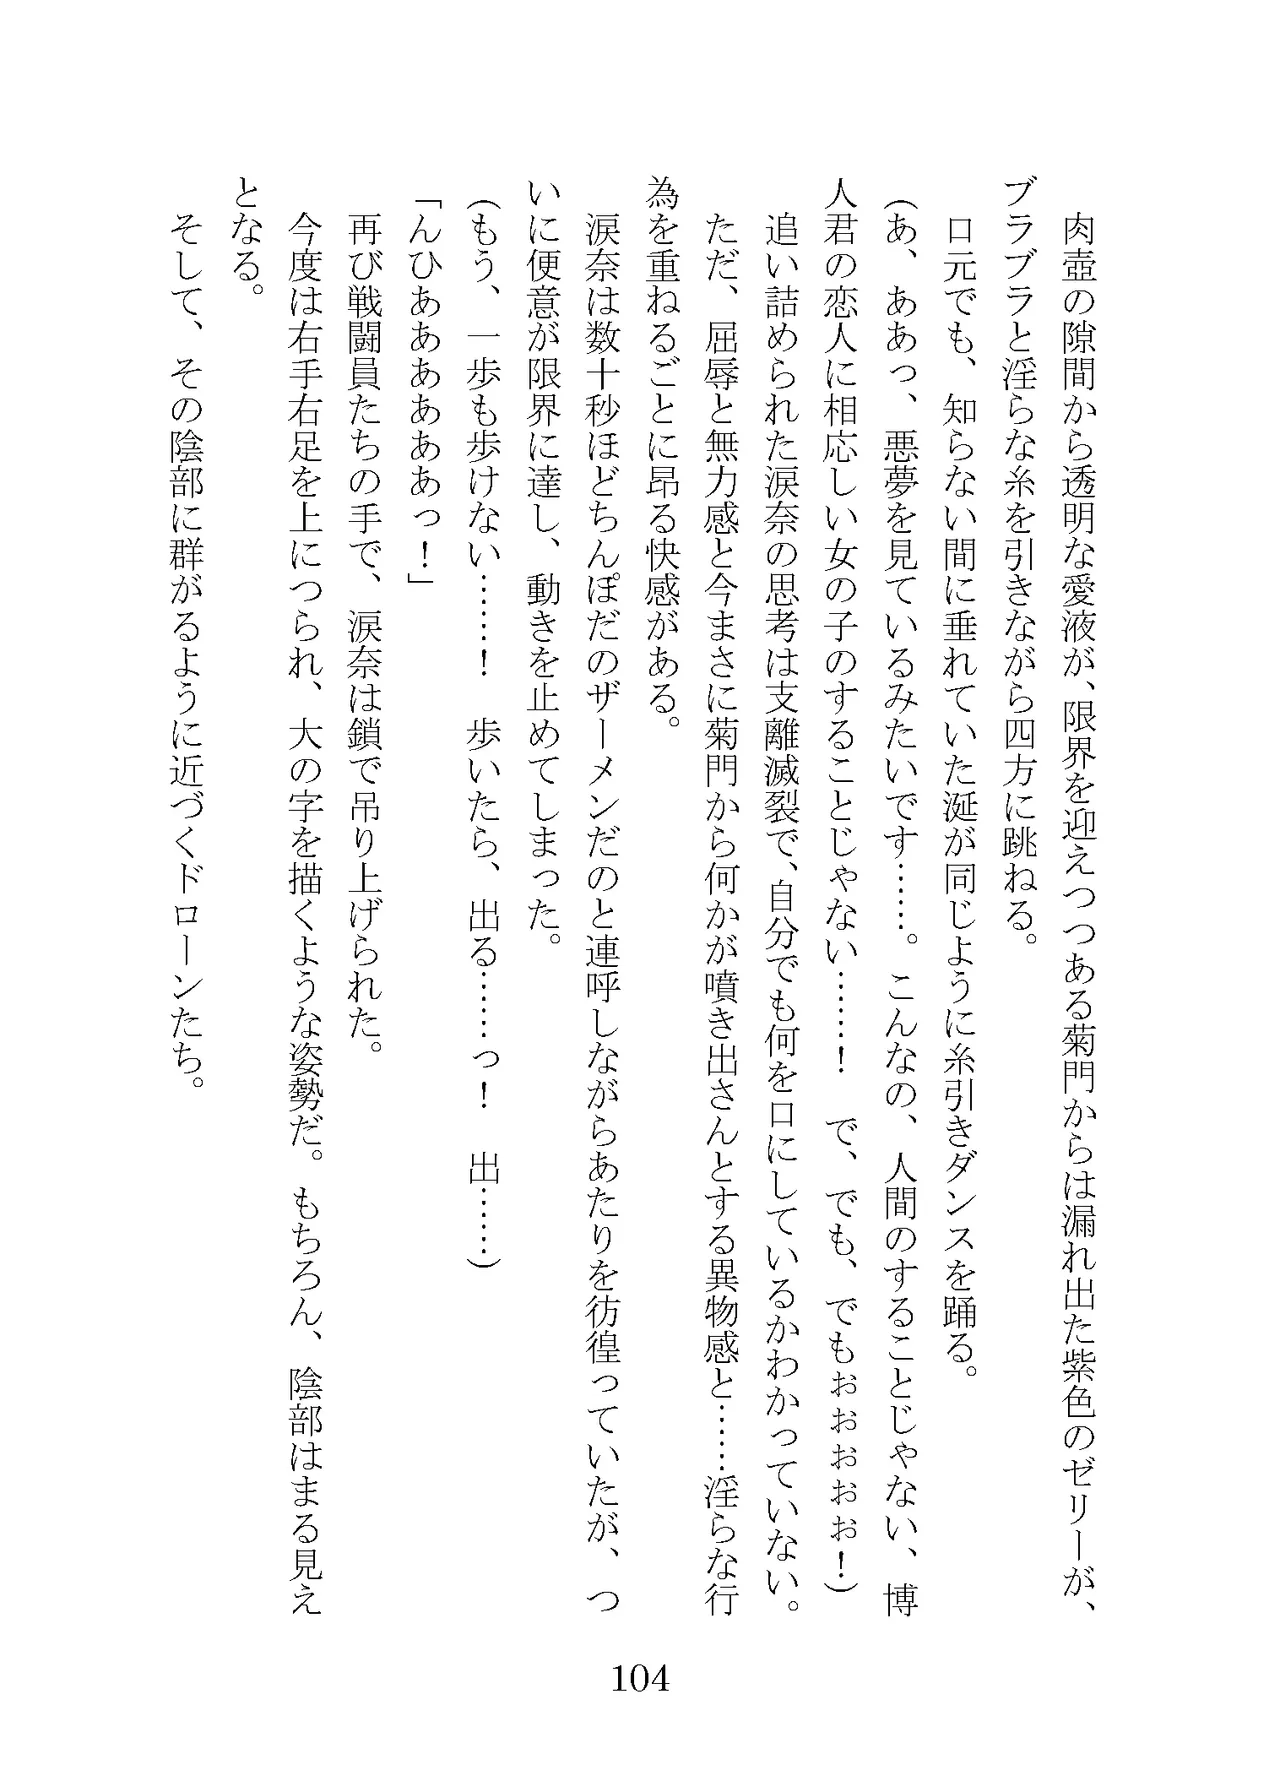 肉壺の隙間から透明な愛液が、限界を迎えつつある菊門からは漏れ出た紫色のゼリーが、
ブラブラと淫らな糸を引きながら四方に跳ねる。
口元でも、知らない間に垂れていた涎が同じように糸引きダンスを踊る。
(あ、ああっ、悪夢を見ているみたいです……。こんなの、人間のすることじゃない、博
人君の恋人に相応しい女の子のすることじゃない……！　で、でも、でもぉぉぉぉぉ！)
追い詰められた涙奈の思考は支離滅裂で、自分でも何を口にしているかわかっていない。
ただ、屈辱と無力感と今まさに菊門から何かが噴き出さんとする異物感と……淫らな行
為を重ねるごとに昂る快感がある。
涙奈は数十秒ほどちんぽだのザーメンだのと連呼しながらあたりを彷徨っていたが、つ
いに便意が限界に達し、動きを止めてしまった。
(もう、一歩も歩けない……！　歩いたら、出る……っ！　出……)
「んひああああああっ！」
再び戦闘員たちの手で、涙奈は鎖で吊り上げられた。
今度は右手右足を上につられ、大の字を描くような姿勢だ。もちろん、陰部はまる見え
となる。
そして、その陰部に群がるように近づくドローンたち。
104